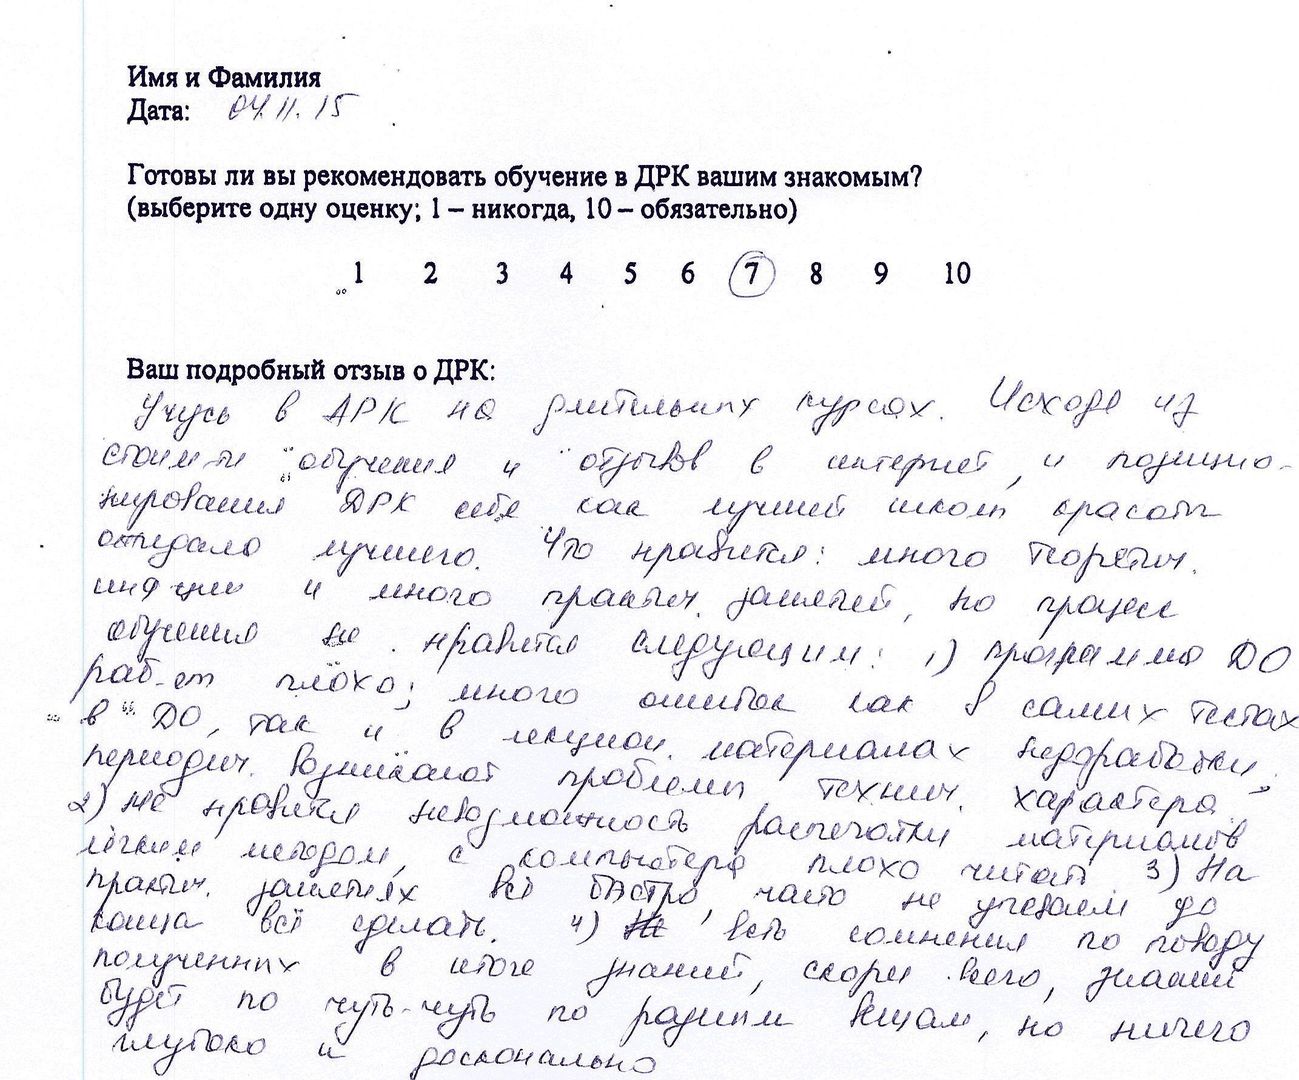 Имя и Фамилия
Дата: 04.11.15
Готовы ли вы рекомендовать обучение в ДРК вашим знакомым?
(выберите одну оценку; 1 – никогда, 10 – обязательно)
1 2 3 4 5 6 7 8 9 10
Ваш подробный отзыв о ДРК:
Учусь в ДРК на длительных курсах. Исходя из
стоим-ти обучения и отзывов в интернет, и позицио-
нирования ДРК себя как лучшей школы красоты
ожидало лучшего. Что нравится: много теоретич.
инф-ции и много практич. занятий, но процесс
обучения не нравится следующим: 1) программа ДО
раб-ет плохо; много ошибок как в самих тестах
в ДО, так и в лекцион. материалах недоработки;
периодич. возникают проблемы технич. характера
2) Не нравится невозможность распечатки материалов
лёгким методом, с компьютера плохо читать 3) На
практич. занятиях всё быстро, часто не успеваем до
конца всё сделать. 4) Есть сомнения по поводу
полученных в итоге знаний, скорее всего, знаний
будет по чуть-чуть по разным вещам, но ничего
глубоко и досконально